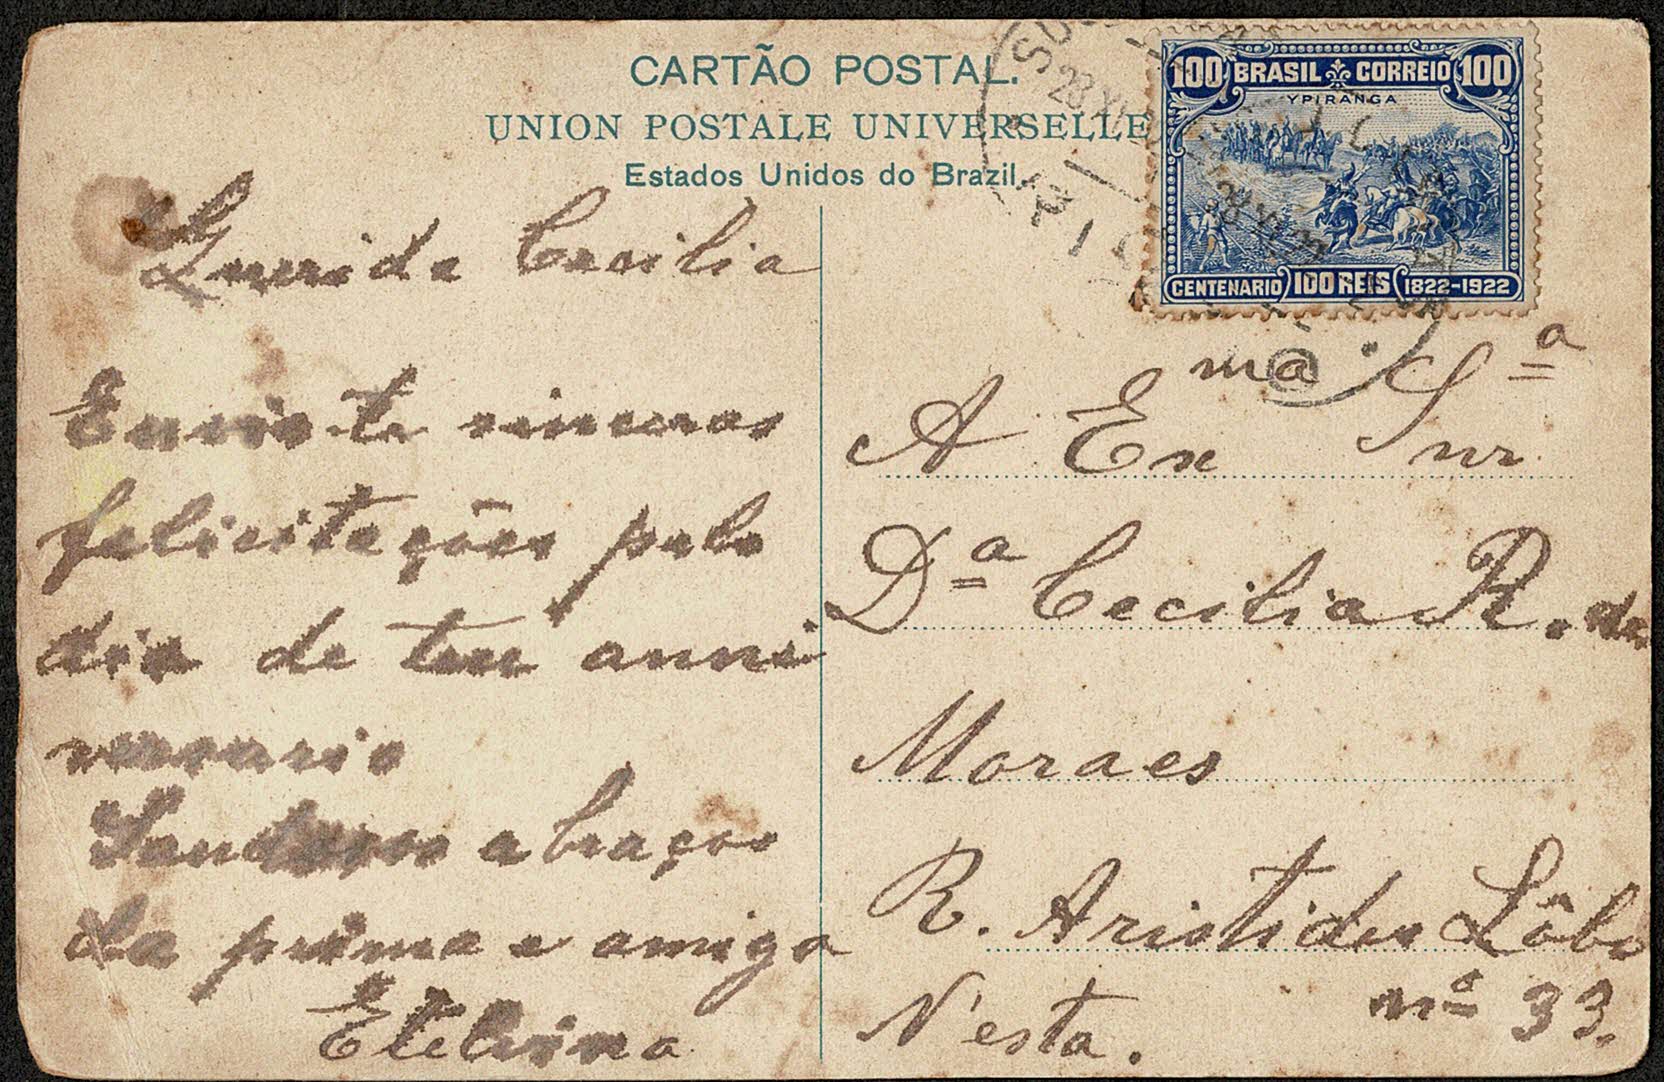 CARTÃO POSTAL.
UNION POSTALE UNIVERSELLE
Estados Unidos do Brazil.
100 BRASIL CORREIO 100
YPIRANGA
CENTENARIO 100 REIS 1822-1922
23 XI
Querida Cecilia
Envio-te sinceras
felicitações pelo
dia de teu anni
versario
abraços
da prima e amiga
Etelvina
A Exma Snra
Da Cecilia R. de
Moraes
R. Aristides Lôbo
no 33.
N'esta.